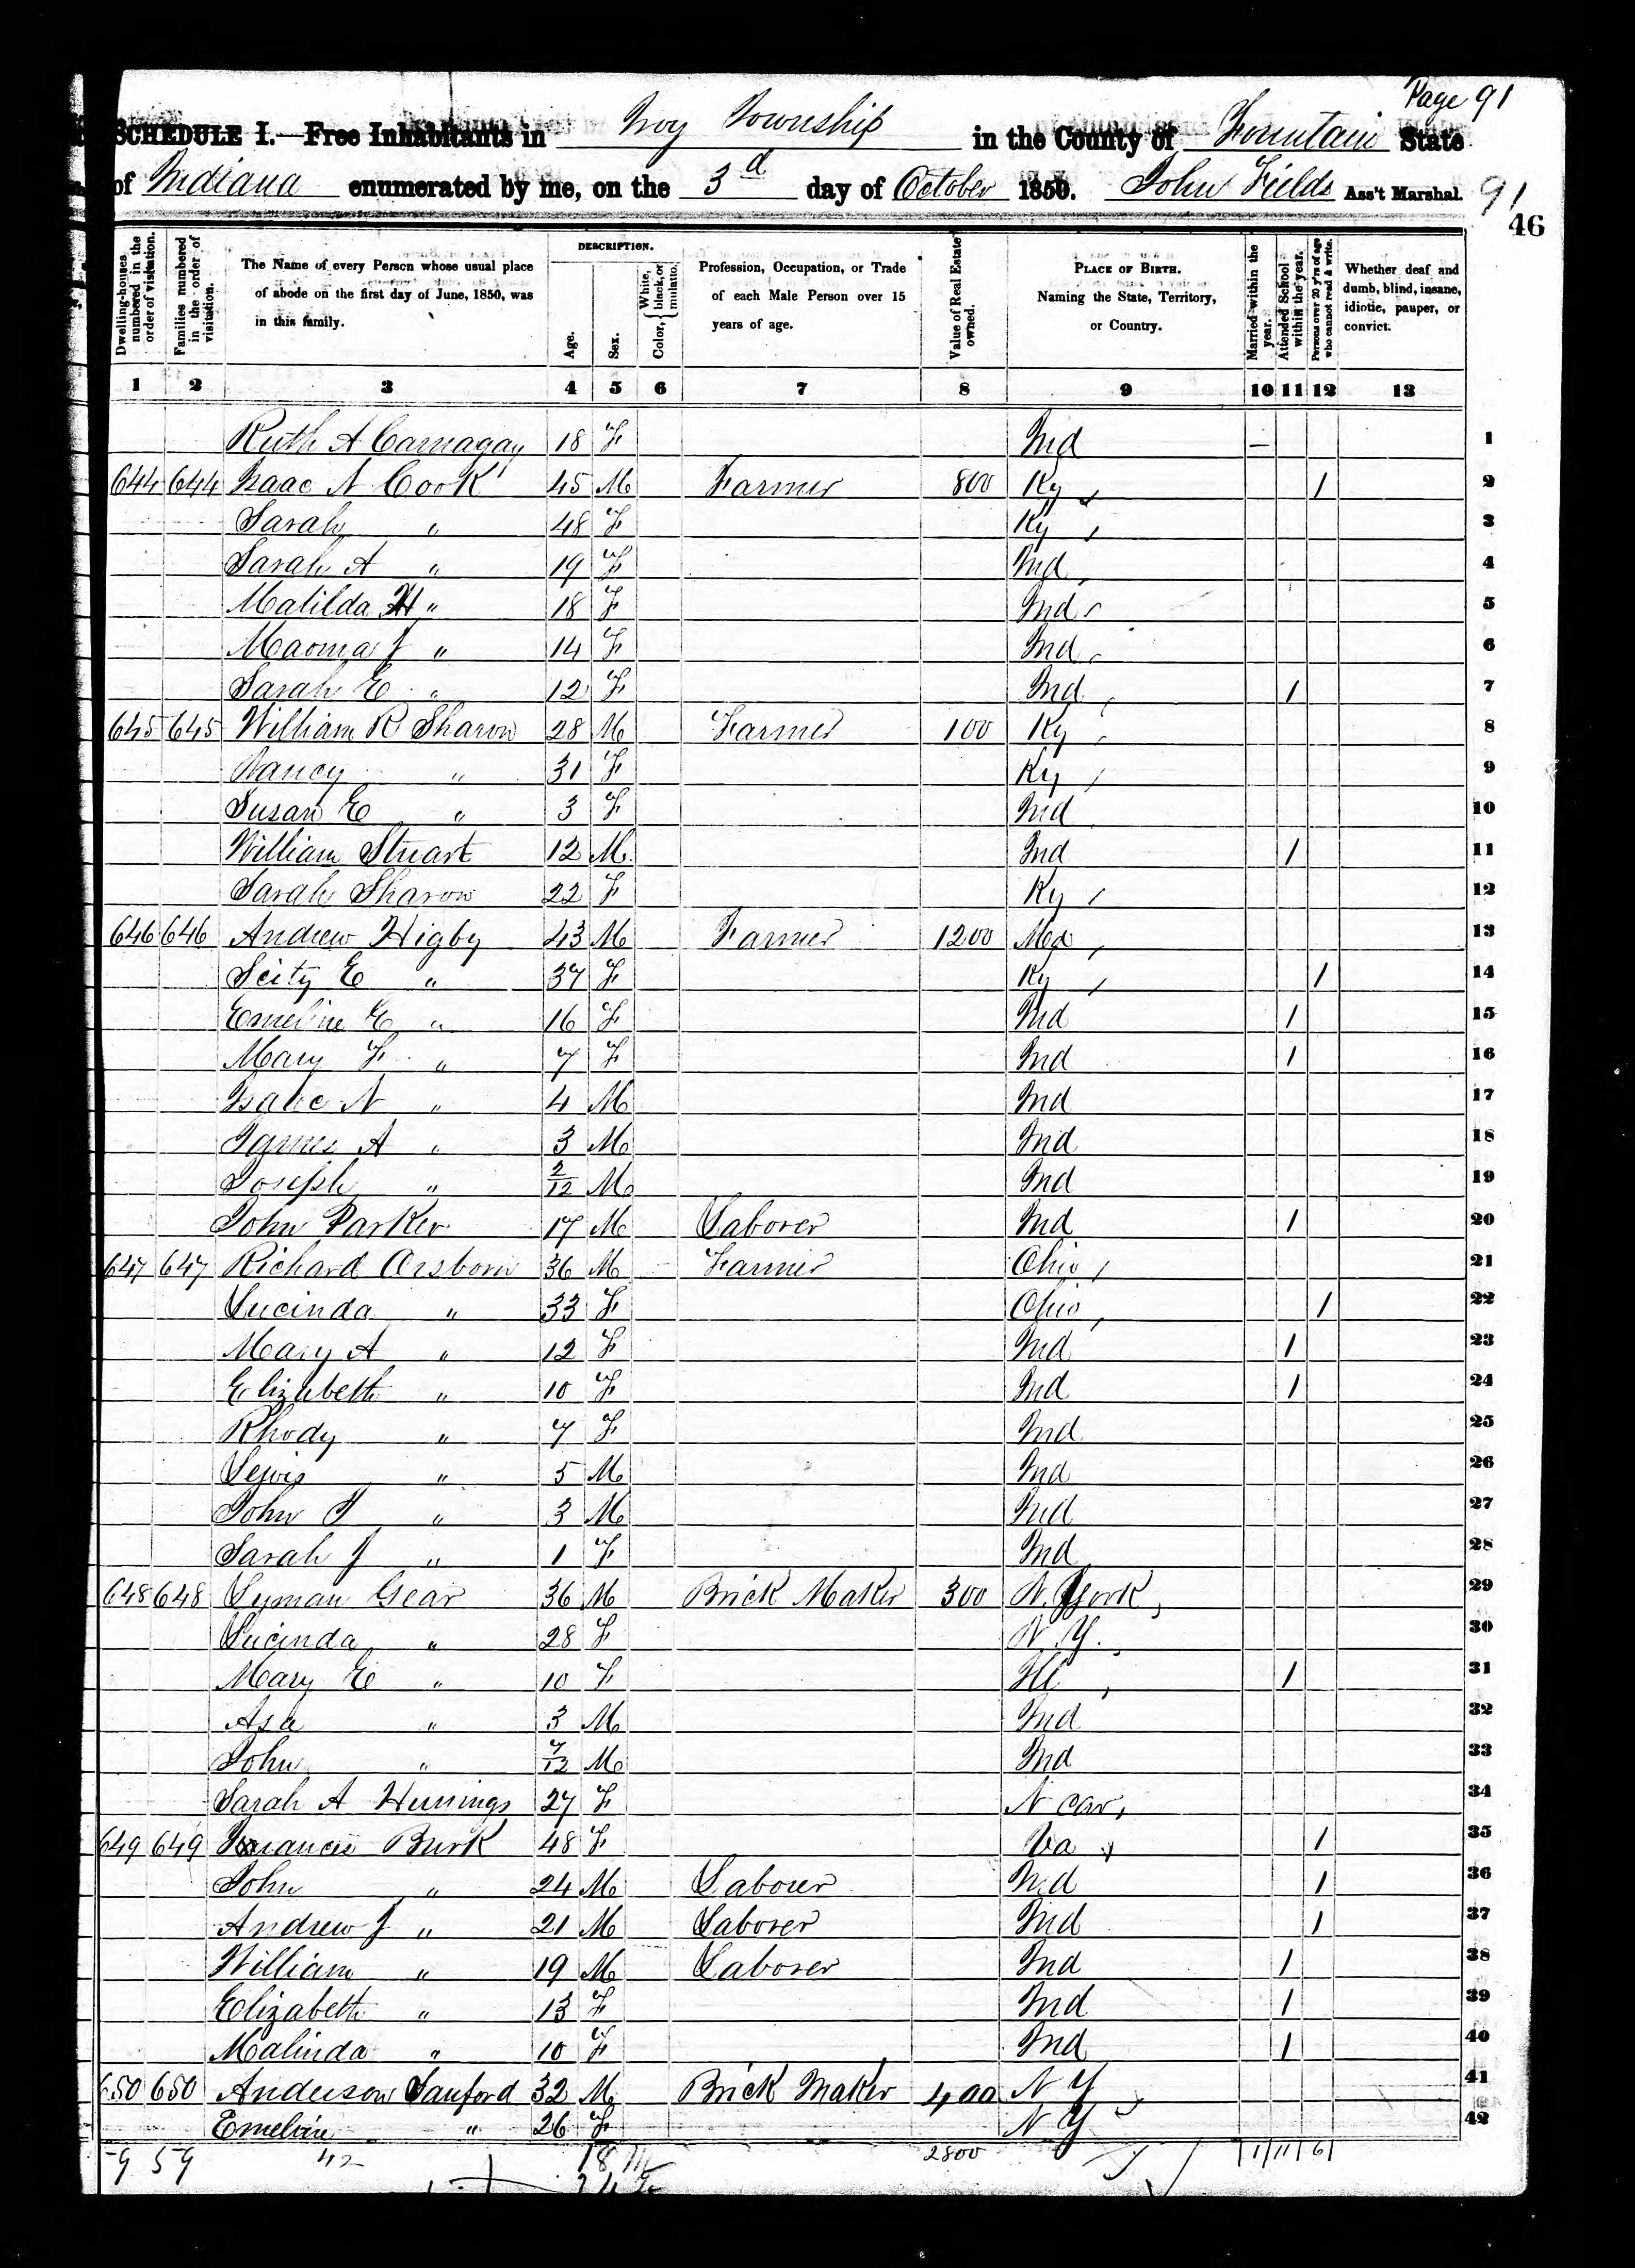 Page 91
SCHEDULE I.—Free Inhabitants in Troy Township in the County of Fountain State
of Indiana enumerated by me, on the 3d day of October 1850. John Fields Ass't Marshal. 91
46
Dwelling-houses numbered in the order of visitation.
Families numbered in the order of visitation.
The Name of every Person whose usual place of abode on the first day of June, 1850, was in this family.
DESCRIPTION.
Age.
Sex.
Color, { White, black, or mulatto.
Profession, Occupation, or Trade of each Male Person over 15 years of age.
Value of Real Estate owned.
PLACE OF BIRTH. Naming the State, Territory, or Country.
Married within the year.
Attended School within the year.
Persons over 20 y'rs of age who cannot read & write.
Whether deaf and dumb, blind, insane, idiotic, pauper, or convict.
1 2 3 4 5 6 7 8 9 10 11 12 13
Ruth A Carnagay 18 F Ind — 1
644 644 Isaac N Cook 45 M Farmer 800 Ky / 2
Sarah " 48 F Ky 3
Sarah A " 19 F Ind 4
Matilda H " 18 F Ind 5
Maoma J " 14 F Ind 6
Sarah E " 12 F Ind / 7
645 645 William R Sharow 28 M Farmer 100 Ky 8
Nancy " 31 F Ky 9
Susan E " 3 F Ind 10
William Stuart 12 M Ind / 11
Sarah Sharow 22 F Ky 12
646 646 Andrew Higby 43 M Farmer 1200 13
Scity E " 37 F Ky / 14
Emeline E " 16 F Ind / 15
Mary F " 7 F Ind / 16
Isaac N " 4 M Ind 17
James A " 3 M Ind 18
Joseph " 2/12 M Ind 19
John Parker 17 M Laborer Ind / 20
647 647 Richard Orsborn 36 M Farmer Ohio 21
Lucinda " 33 F Ohio / 22
Mary A " 12 F Ind / 23
Elizabeth " 10 F Ind / 24
Rhody " 7 F Ind 25
Lewis " 5 M Ind 26
John " 3 M Ind 27
Sarah J " 1 F Ind 28
648 648 Lyman Gear 36 M Brick Maker 300 N. York 29
Lucinda " 28 F N. Y. 30
Mary E " 10 F Ill / 31
Asa " 3 M Ind 32
John " 7/12 M Ind 33
Sarah A 27 F N Car 34
649 649 Francis Burk 48 F Va / 35
John " 24 M Labouer Ind / 36
Andrew J " 21 M Laborer Ind / 37
William " 19 M Laborer Ind / 38
Elizabeth " 13 F Ind / 39
Malinda " 10 F Ind / 40
650 650 Anderson Sanford 32 M Brick Maker 400 N Y 41
Emeline " 26 F N Y 42
59 42 18 M 2800 1 11 6
24 F